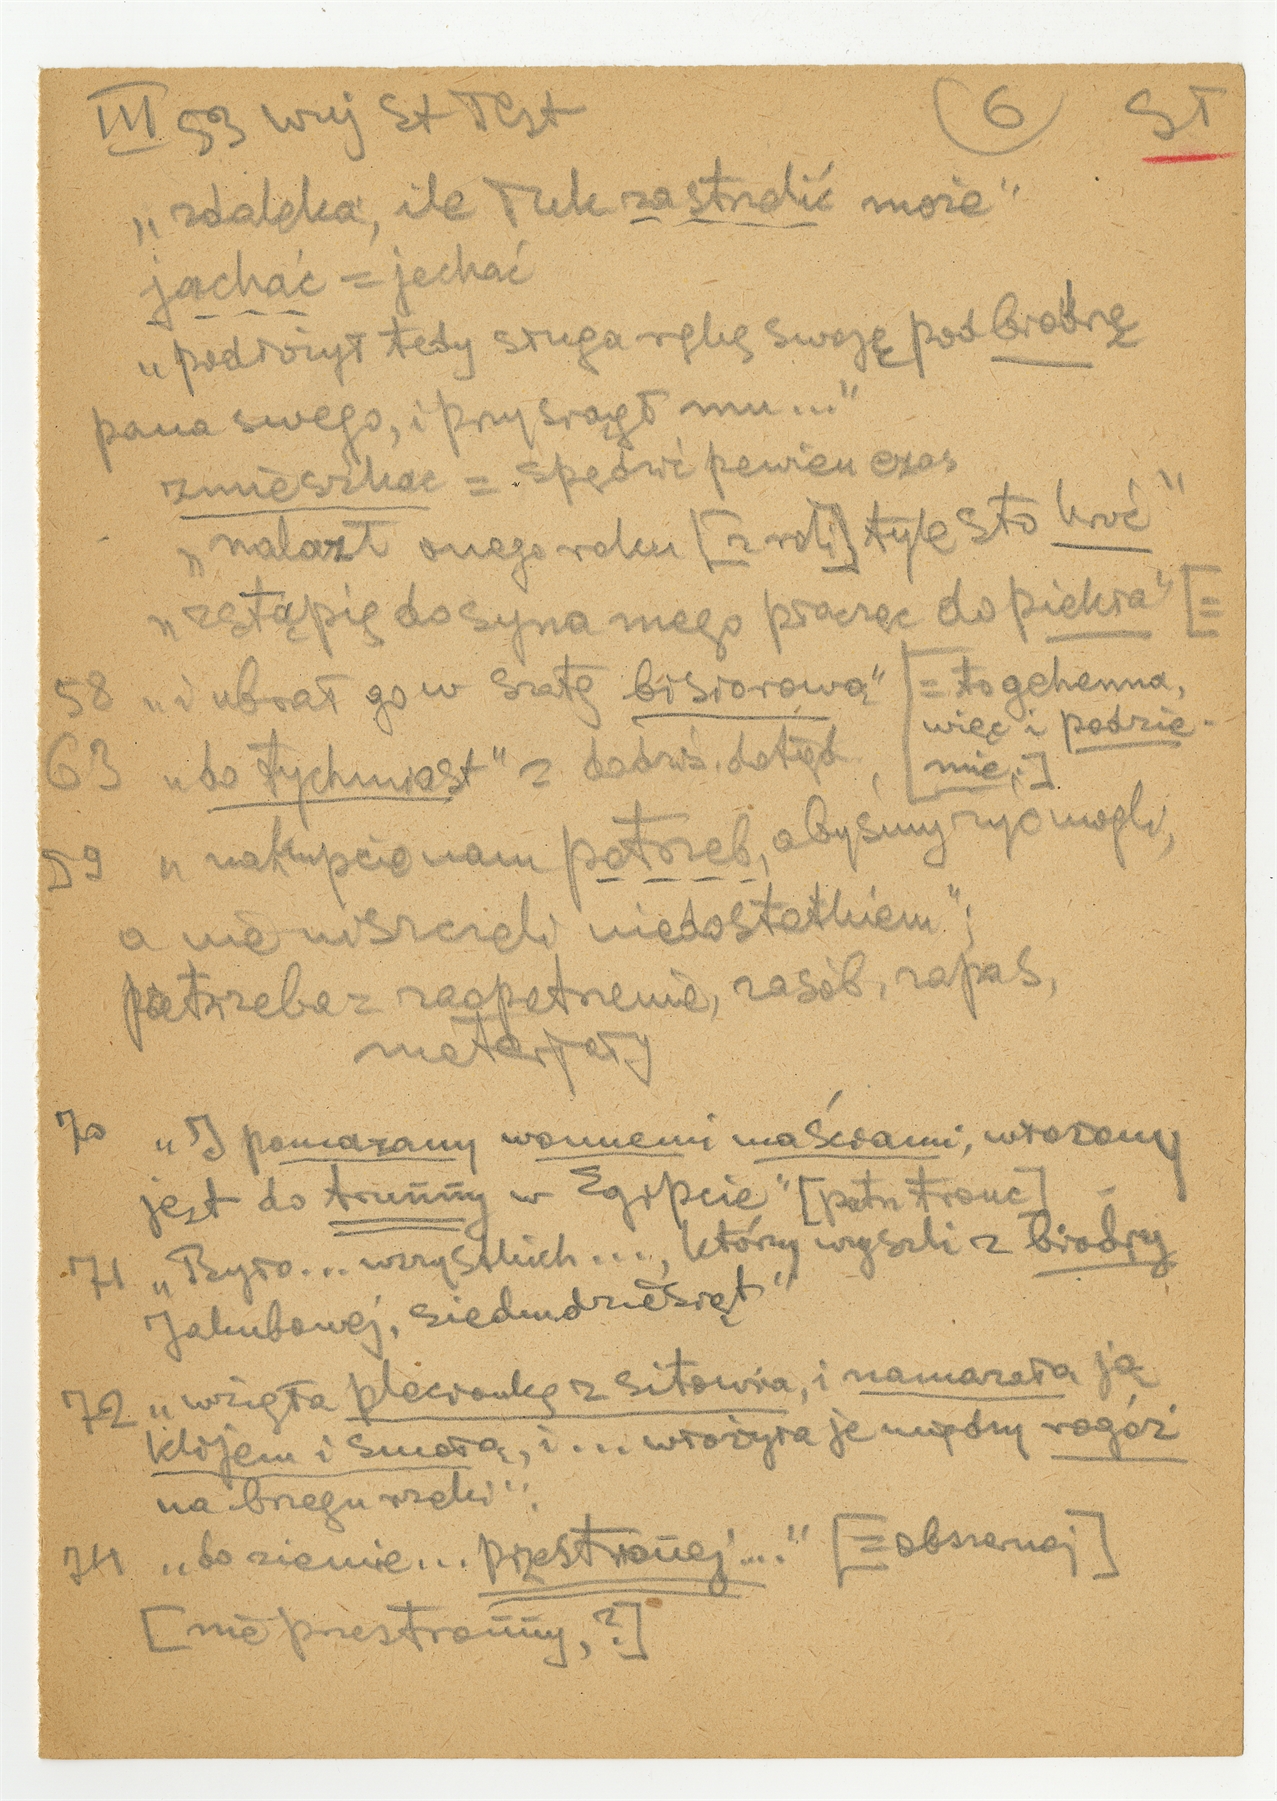 III 53 Wuj St Test 6 ST
„zdaleka, ile łuk zastrzelić może"
jachać = jechać
„podłożył tedy sługa rękę swoję pod biodrę
pana swego, i przysiągł mu..."
zmieszkać = spędzić pewien czas
„nalazł onego roku [z roli] tyle sto kroć"
„zstąpię do syna mego płacząc do piekła" [=
58 „i ubrał go w szatę bisiorową" [= to gehenna,
więc i podzie-
mie;]
63 „do tychmiast" = do dziś. dotąd,
59 „nakupcie nam potrzeb, abyśmy żyć mogli,
a nie niszczeli niedostatkiem";
potrzeba = zaopatrzenie, zasób, zapas,
materjały
70 „I pomazany wonnemi maściami, włożony
jest do trunny w Egipcie" [patrz] -
71 „Było... wszystkich..., którzy wyszli z biodry
Jakubowej, siedmdziesiąt"
72 „wzięła plecionkę z sitowia, i namazała ją
klijem i smołą, i... włożyła je między rogóż
na brzegu rzeki".
74 „do ziemie... przestronej..." [= obszernej]
[nie przestronny, ?]